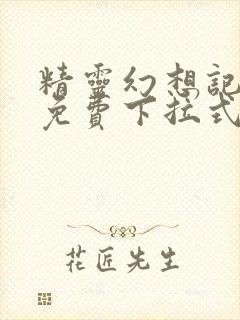 精靈幻想記
免費下拉式
花匠先生